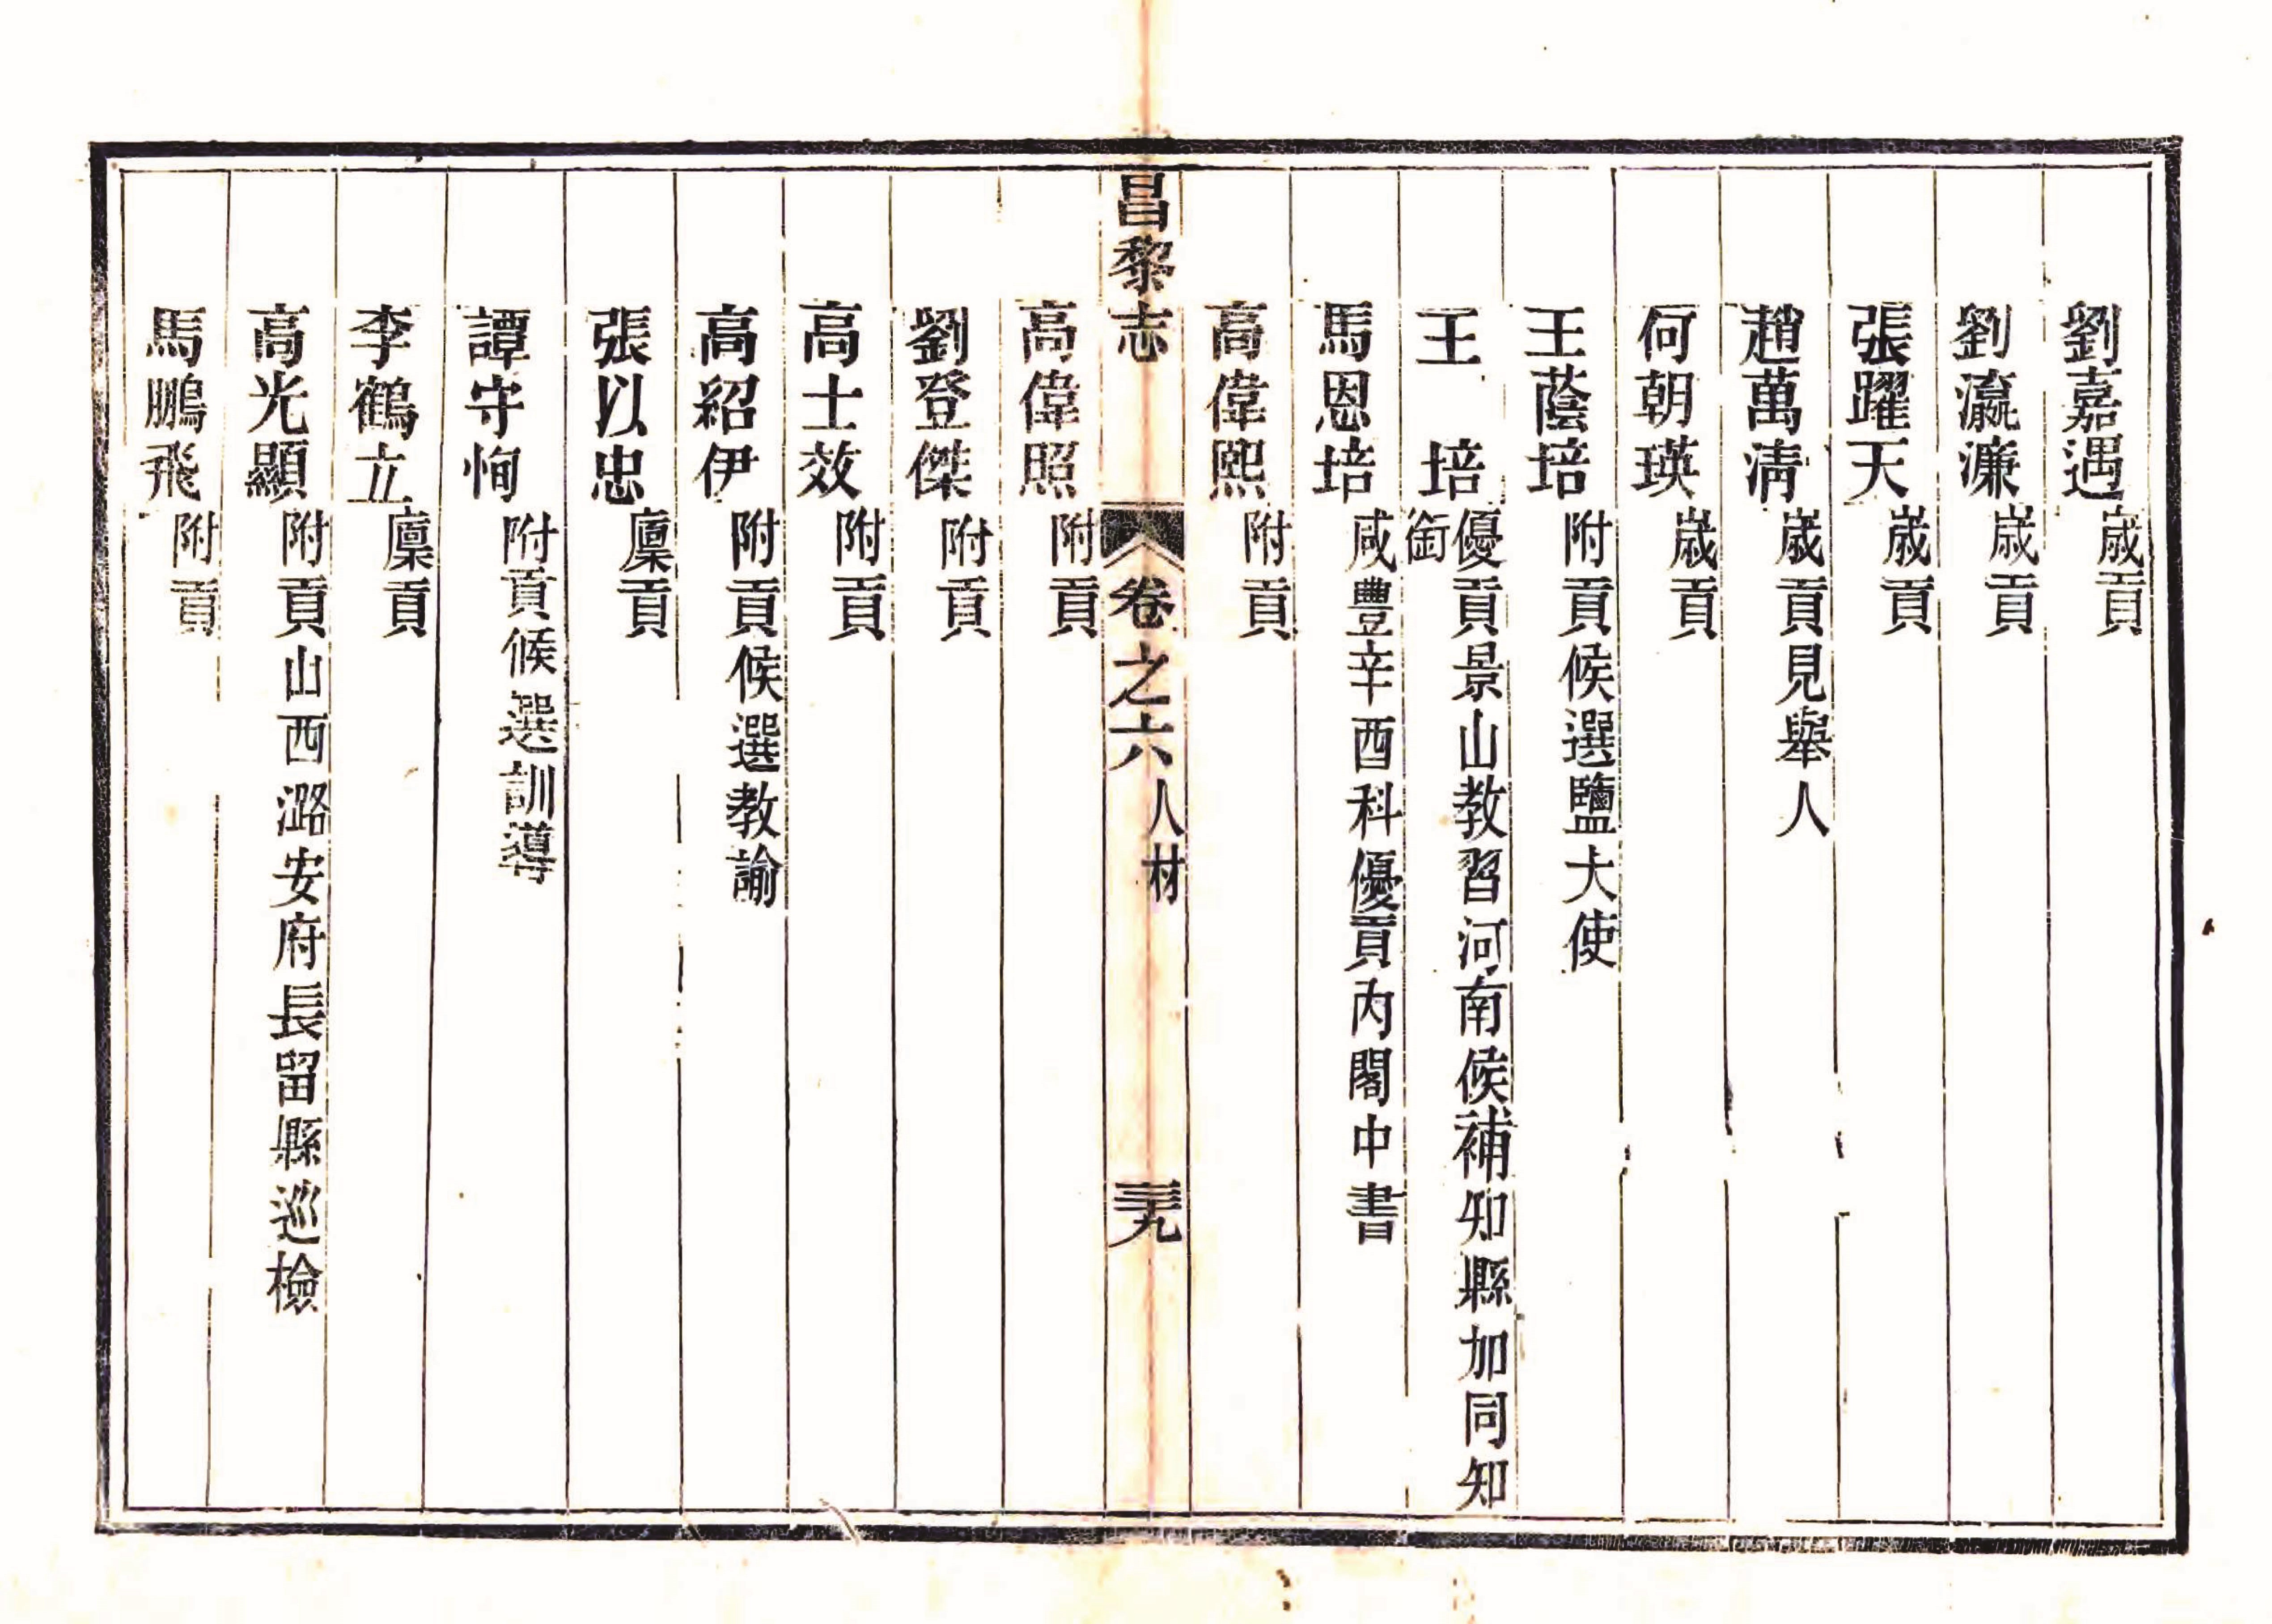 劉嘉遇歲貢
劉瀛濂歲貢
張躍天歲貢
趙萬清歲貢見舉人
何朝瑛歲貢
王蔭培附貢候選鹽大使
王培優貢景山教習河南候補知縣加同知
銜
馬恩培咸豐辛酉科優貢內閣中書
高偉熙附貢
昌黎志 卷之六 人材 三十九
高偉照附貢
劉登傑附貢
高士效附貢
高紹伊附貢候選教諭
張以忠廩貢
譚守恂附貢候選訓導
李鶴立廩貢
高光顯附貢山西潞安府長留縣巡檢
馬鵬飛附貢